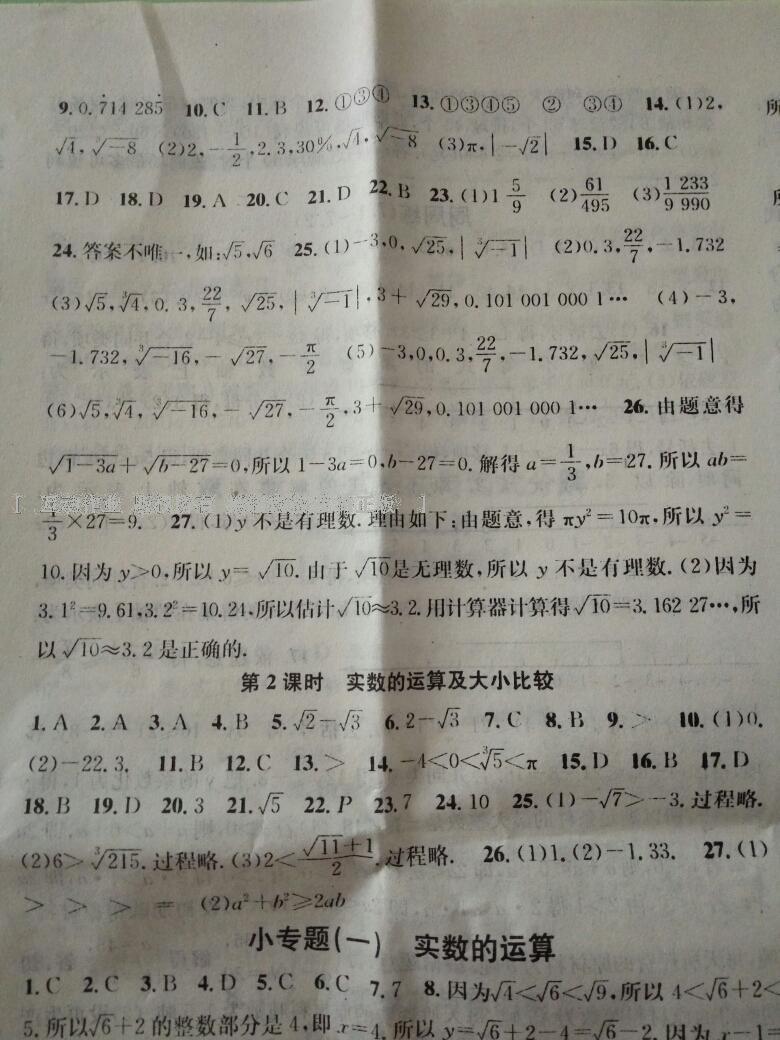 9. 0.7̇14 285̇ 10. C 11. B 12. ①③④ 13. ①③④⑤ ② ③④ 14. (1)2, 所
√4, ∛−8 (2)2, −1/2, 2.3, 30%, √4, ∛−8 (3)π, |−√2| 15. D 16. C
17. D 18. D 19. A 20. C 21. D 22. B 23. (1)1 5/9 (2)61/495 (3)1 233/9 990
24. 答案不唯一,如:√5,√6 25. (1)−3,0, √25, |∛−1| (2)0.3, 22/7, −1.732
(3)√5, ∛4, 0.3, 22/7, √25, |∛−1|, 3+√29, 0.101 001 000 1⋯ (4)−3,
−1.732, ∛−16, −√27, −π/2 (5)−3,0,0.3, 22/7, −1.732, √25, |∛−1|
(6)√5, ∛4, ∛−16, −√27, −π/2, 3+√29, 0.101 001 000 1⋯ 26. 由题意得
√1−3a+√b−27=0,所以 1−3a=0,b−27=0. 解得 a=1/3,b=27. 所以 ab=
1/3×27=9. 27. (1)y 不是有理数. 理由如下:由题意,得 πy²=10π,所以 y²=
10. 因为 y>0,所以 y=√10. 由于 √10是无理数,所以 y 不是有理数. (2)因为
3.1²=9.61,3.2²=10.24,所以估计√10≈3.2. 用计算器计算得√10=3.162 27⋯,所
以√10≈3.2 是正确的.
第 2 课时 实数的运算及大小比较
1. A 2. A 3. A 4. B 5. √2−√3 6. 2−√3 7. C 8. B 9. > 10. (1)0.
(2)−22.3. 11. B 12. C 13. > 14. −4<0<∛5<π 15. D 16. B 17. D
18. B 19. D 20. 3 21. √5 22. P 23. 7 24. 10 25. (1)−√7>−3. 过程略.
(2)6>∛215. 过程略. (3)2<√11+1/2. 过程略. 26. (1)1. (2)−1.33. 27. (1)
> > > = (2)a²+b²≥2ab
小专题(一) 实数的运算
1. C 2. C 3. B 4. D 5. C 6. C 7. 7 8. 因为√4<√6<√9,所以 4<√6+2<
5. 所以√6+2 的整数部分是 4,即 x=4. 所以 y=√6+2−4=√6−2. 因为 x−1=